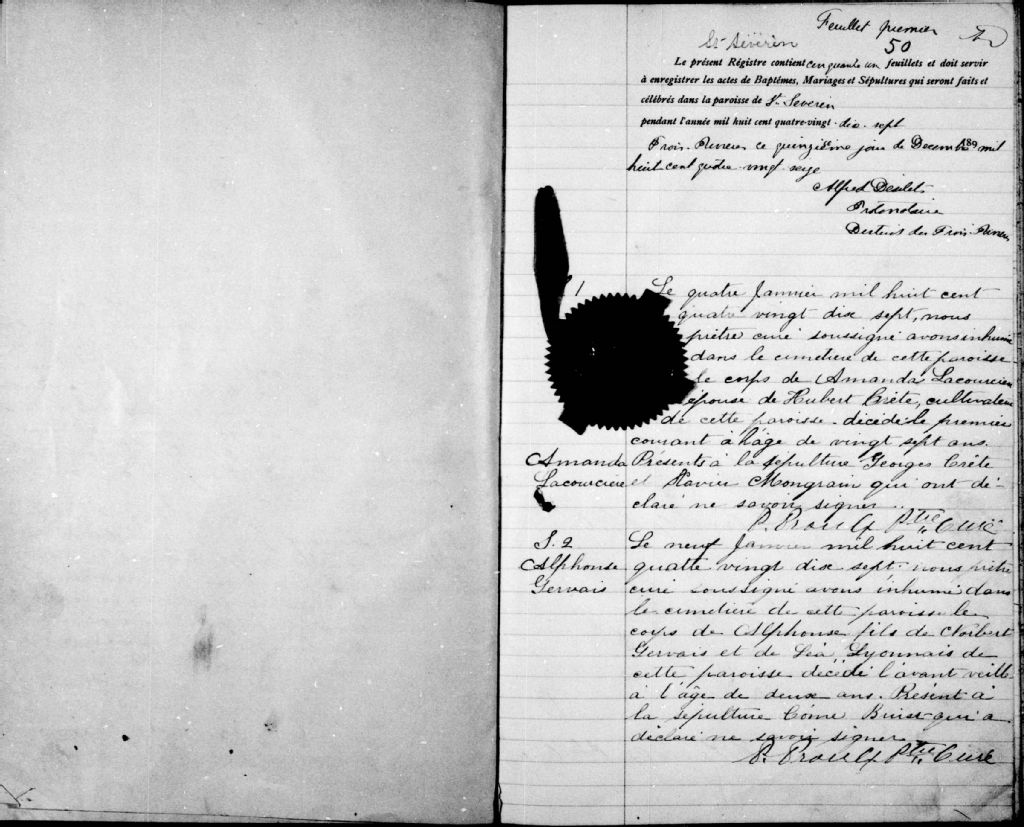 Feuillet premier
50
St Séverin
Le présent Régistre contient cinquante un feuillets et doit servir
à enregistrer les actes de Baptêmes, Mariages et Sépultures qui seront faits et
célébrés dans la paroisse de St. Severin
pendant l'année mil huit cent quatre-vingt-dix-sept
Trois-Rivieres ce quinzième jour de Decembre mil
huit cent quatre-vingt seize
Alfred Désilets
Protonotaire
District des Trois-Rivieres
1
Le quatre Janvier mil huit cent
quatre vingt dix sept, nous
prêtre curé soussigné avons inhumé
dans le cimetière de cette paroisse
le corps de Amanda Lacourcière
épouse de Hubert Crête, cultivateur
de cette paroisse décédé le premier
courant à l'âge de vingt sept ans.
Amanda
Lacourcière
Présents à la sépulture Georges Crête
et Xavier Mongrain qui ont dé-
claré ne savoir signer.
P. Proulx Ptre Curé
S. 2
Alphonse
Gervais
Le neuf Janvier mil huit cent
quatre vingt dix sept nous prêtre
curé soussigné avons inhumé dans
le cimetière de cette paroisse le
corps de Alphonse fils de Norbert
Gervais et de Léa Lyonnais de
cette paroisse décédé l'avant veille
à l'âge de deux ans. Présent à
la sépulture Côme qui a
déclaré ne savoir signer
P. Proulx Ptre Curé